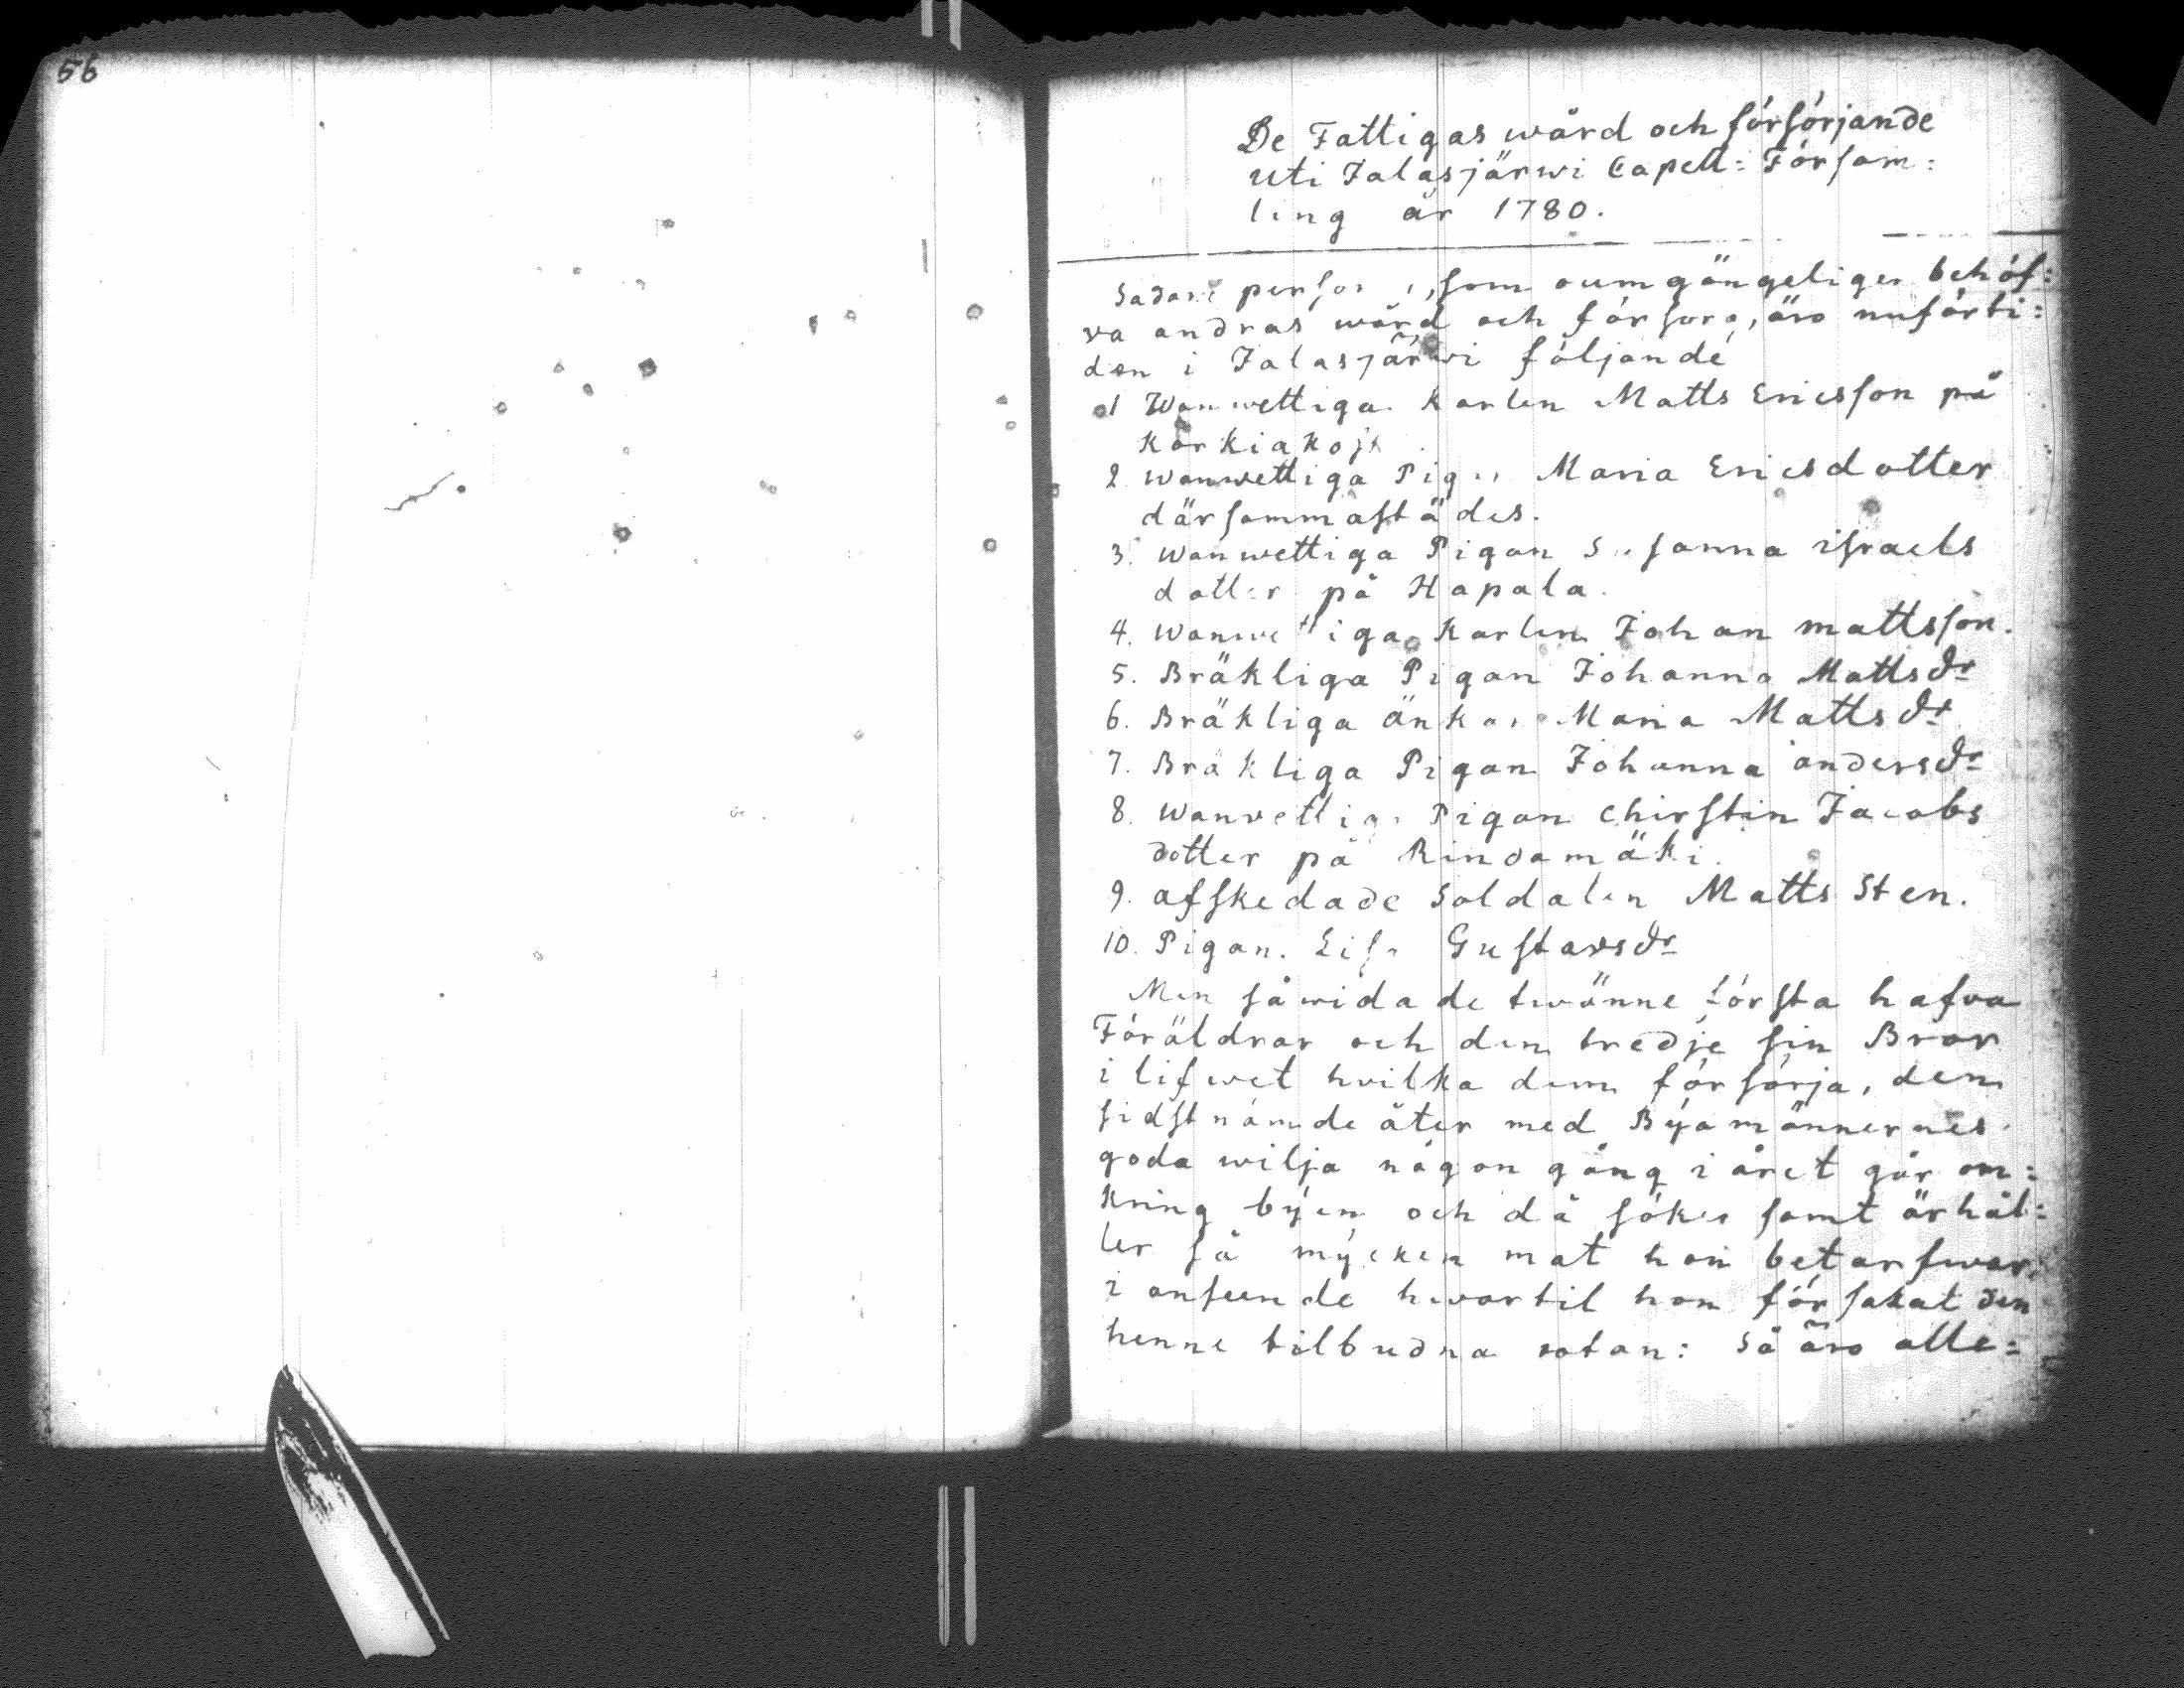 56
De Fattigas wård och försörjande
uti Jalasjärwi Capell: Försam:
ling år 1780.
Sådane som oumgängeligen behöf:
va andras wård och försorg, äro nuförti:
den i Jalasjärwi följande
1 Wanwettiga Karlen Matts Ericsson på
2 wanwettiga Pigan Maria Ericsdotter
därsammastädes.
3. wanwettiga Pigan Susanna israels
dotter på Hapala.
4. wanwettiga Karlen Johan mattsson.
5. Bräkliga Pigan Johanna Mattsdr
6. Bräkliga änkan Maria Mattsdr
7. Bräkliga Pigan Johanna andersdr
8. wanvettiga Pigan Chirstin Jacobs
dotter på Rindamäki.
9. afskedade Soldaten Matts Sten.
10. Pigan. Lisa Gustavsdr
Men såwida de twänne första hafva
Föräldrar och den tredje sin Bror
i lifwet hvilka dem försörja, den
sidstnämde åter med Byamännernes
goda wilja någon gång i året går om:
kring byen och då söker samt ärhål:
ler så mycken mat hon betarfwar,
i anseende hwartil hon försakat den
henne tilbudna rotan: så äro alle: